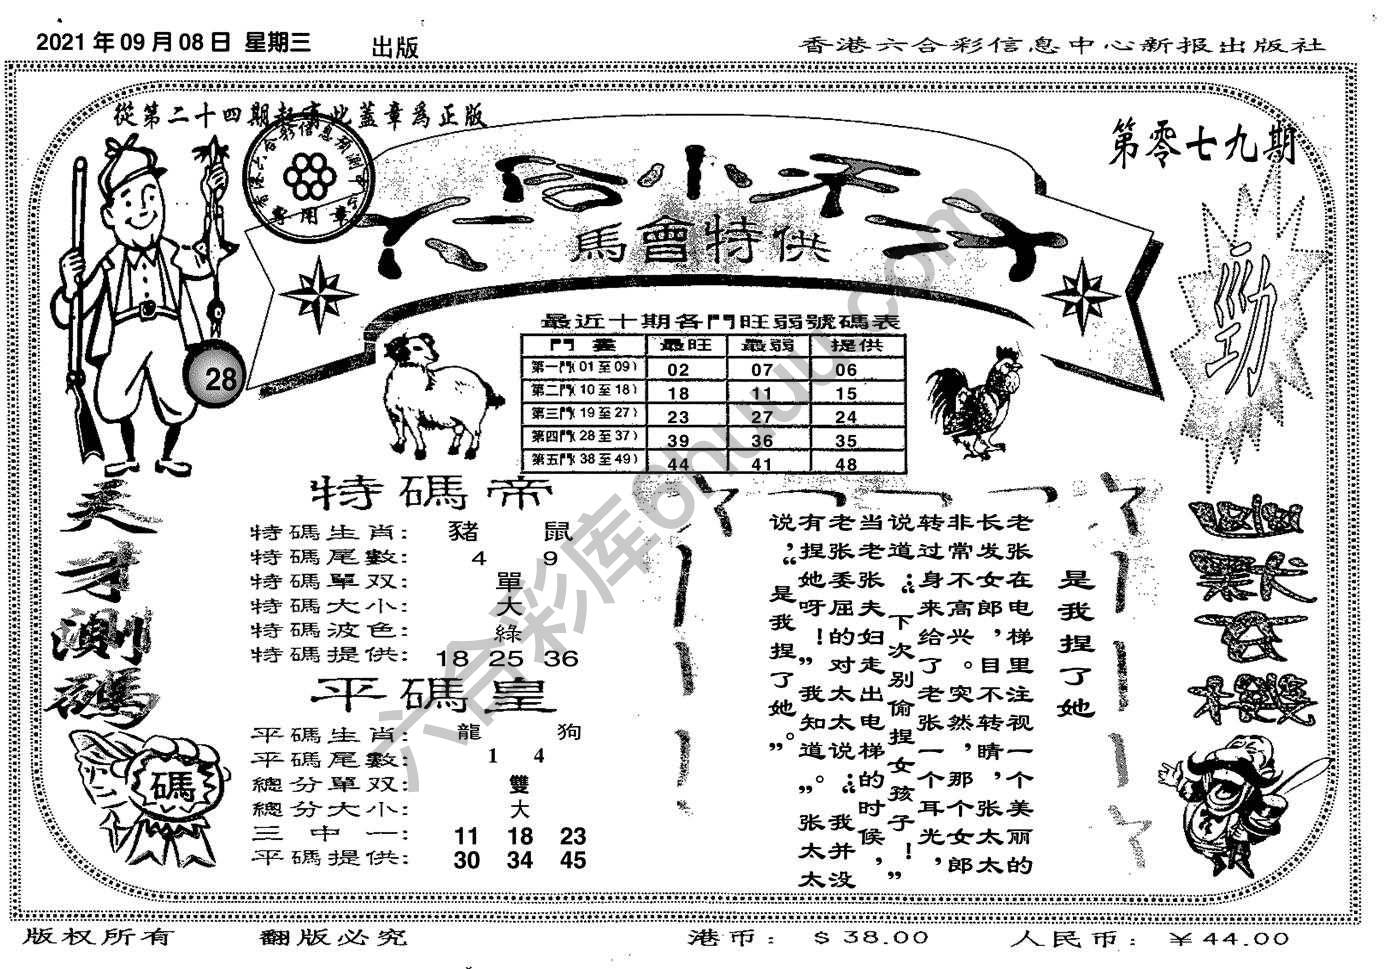 2021 年 09 月 08 日 星期三 出版
香港六合彩信息中心新报出版社
從第二十四期起有此蓋章爲正版
第零七九期
馬會特供
勁
28
最近十期各門旺弱號碼表
門 最旺 最弱 提供
第一門(01 至 09) 02 07 06
第二門(10 至 18) 18 11 15
第三門(19 至 27) 23 27 24
第四門(28 至 37) 39 36 35
第五門(38 至 49) 44 41 48
天才測碼
碼
特碼帝
特碼生肖: 豬 鼠
特碼尾數: 4 9
特碼單双: 單
特碼大小: 大
特碼波色: 綠
特碼提供: 18 25 36
平碼皇
平碼生肖: 龍 狗
平碼尾數: 1 4
總分單双: 雙
總分大小: 大
三中一: 11 18 23
平碼提供: 30 34 45
是我捏了她
老张在电梯里注视一个美丽的
长发女郎,目不转睛,张太太
非常不高兴。突然,那个女郎
转过身来给了老张一个耳光,
说道:“下次别偷捏女孩子!”
当老张夫妇走出电梯的时候,
老张委屈的对太太说:“我并没
有捏她呀!”“我知道。”张太太
说,“是我捏了她。”
六合彩库6huuu.com
版权所有 翻版必究 港币: $38.00 人民币: ¥44.00